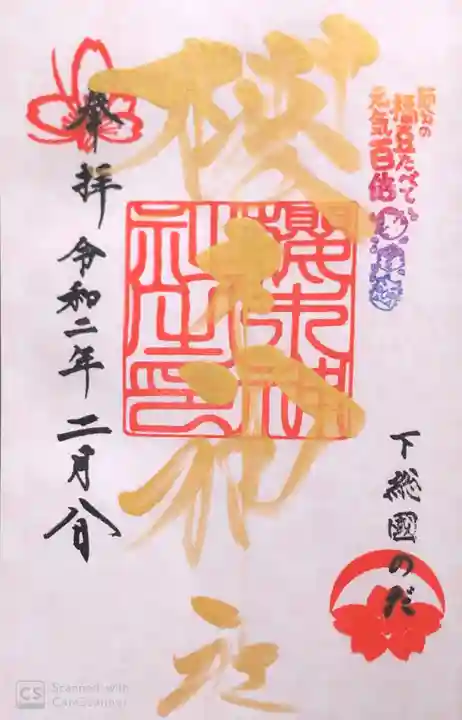 節分の
福豆たべて
元気百倍
下総國のだ
櫻木神社
櫻木神
社之印
奉拝
令和二年二月八日
CS Scanned with
CamScanner